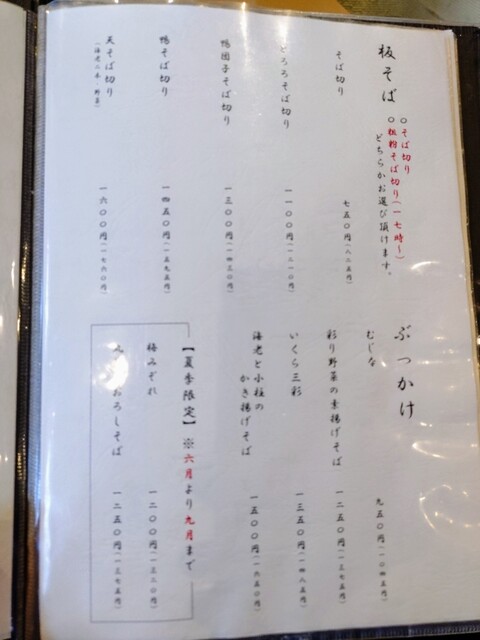 板そば
○そば切り
○粗粉そば切り(一七時~)
どちらかお選び頂けます。
そば切り 七五〇円(八二五円)
とろろそば切り 一一〇〇円(一二一〇円)
鴨団子そば切り 一三〇〇円(一四三〇円)
鴨そば切り 一四五〇円(一五九五円)
天そば切り 一六〇〇円(一七六〇円)
(海老二本・野菜)
ぶっかけ
むじな 九五〇円(一〇四五円)
彩り野菜の素揚げそば 一二五〇円(一三七五円)
いくら三彩 一三五〇円(一四八五円)
海老と小柱の
かき揚げそば 一五〇〇円(一六五〇円)
【夏季限定】※六月より九月まで
梅みぞれ 一二〇〇円(一三二〇円)
おろしそば 一二五〇円(一三七五円)